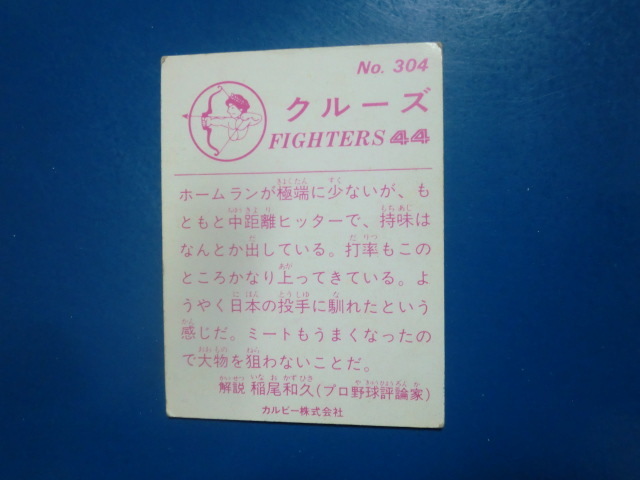 No. 304
クルーズ
FIGHTERS 44
ホームランが極端に少ないが、も
ともと中距離ヒッターで、持味は
なんとか出している。打率もこの
ところかなり上ってきている。よ
うやく日本の投手に馴れたという
感じだ。ミートもうまくなったの
で大物を狙わないことだ。
解説 稲尾和久(プロ野球評論家)
カルビー株式会社